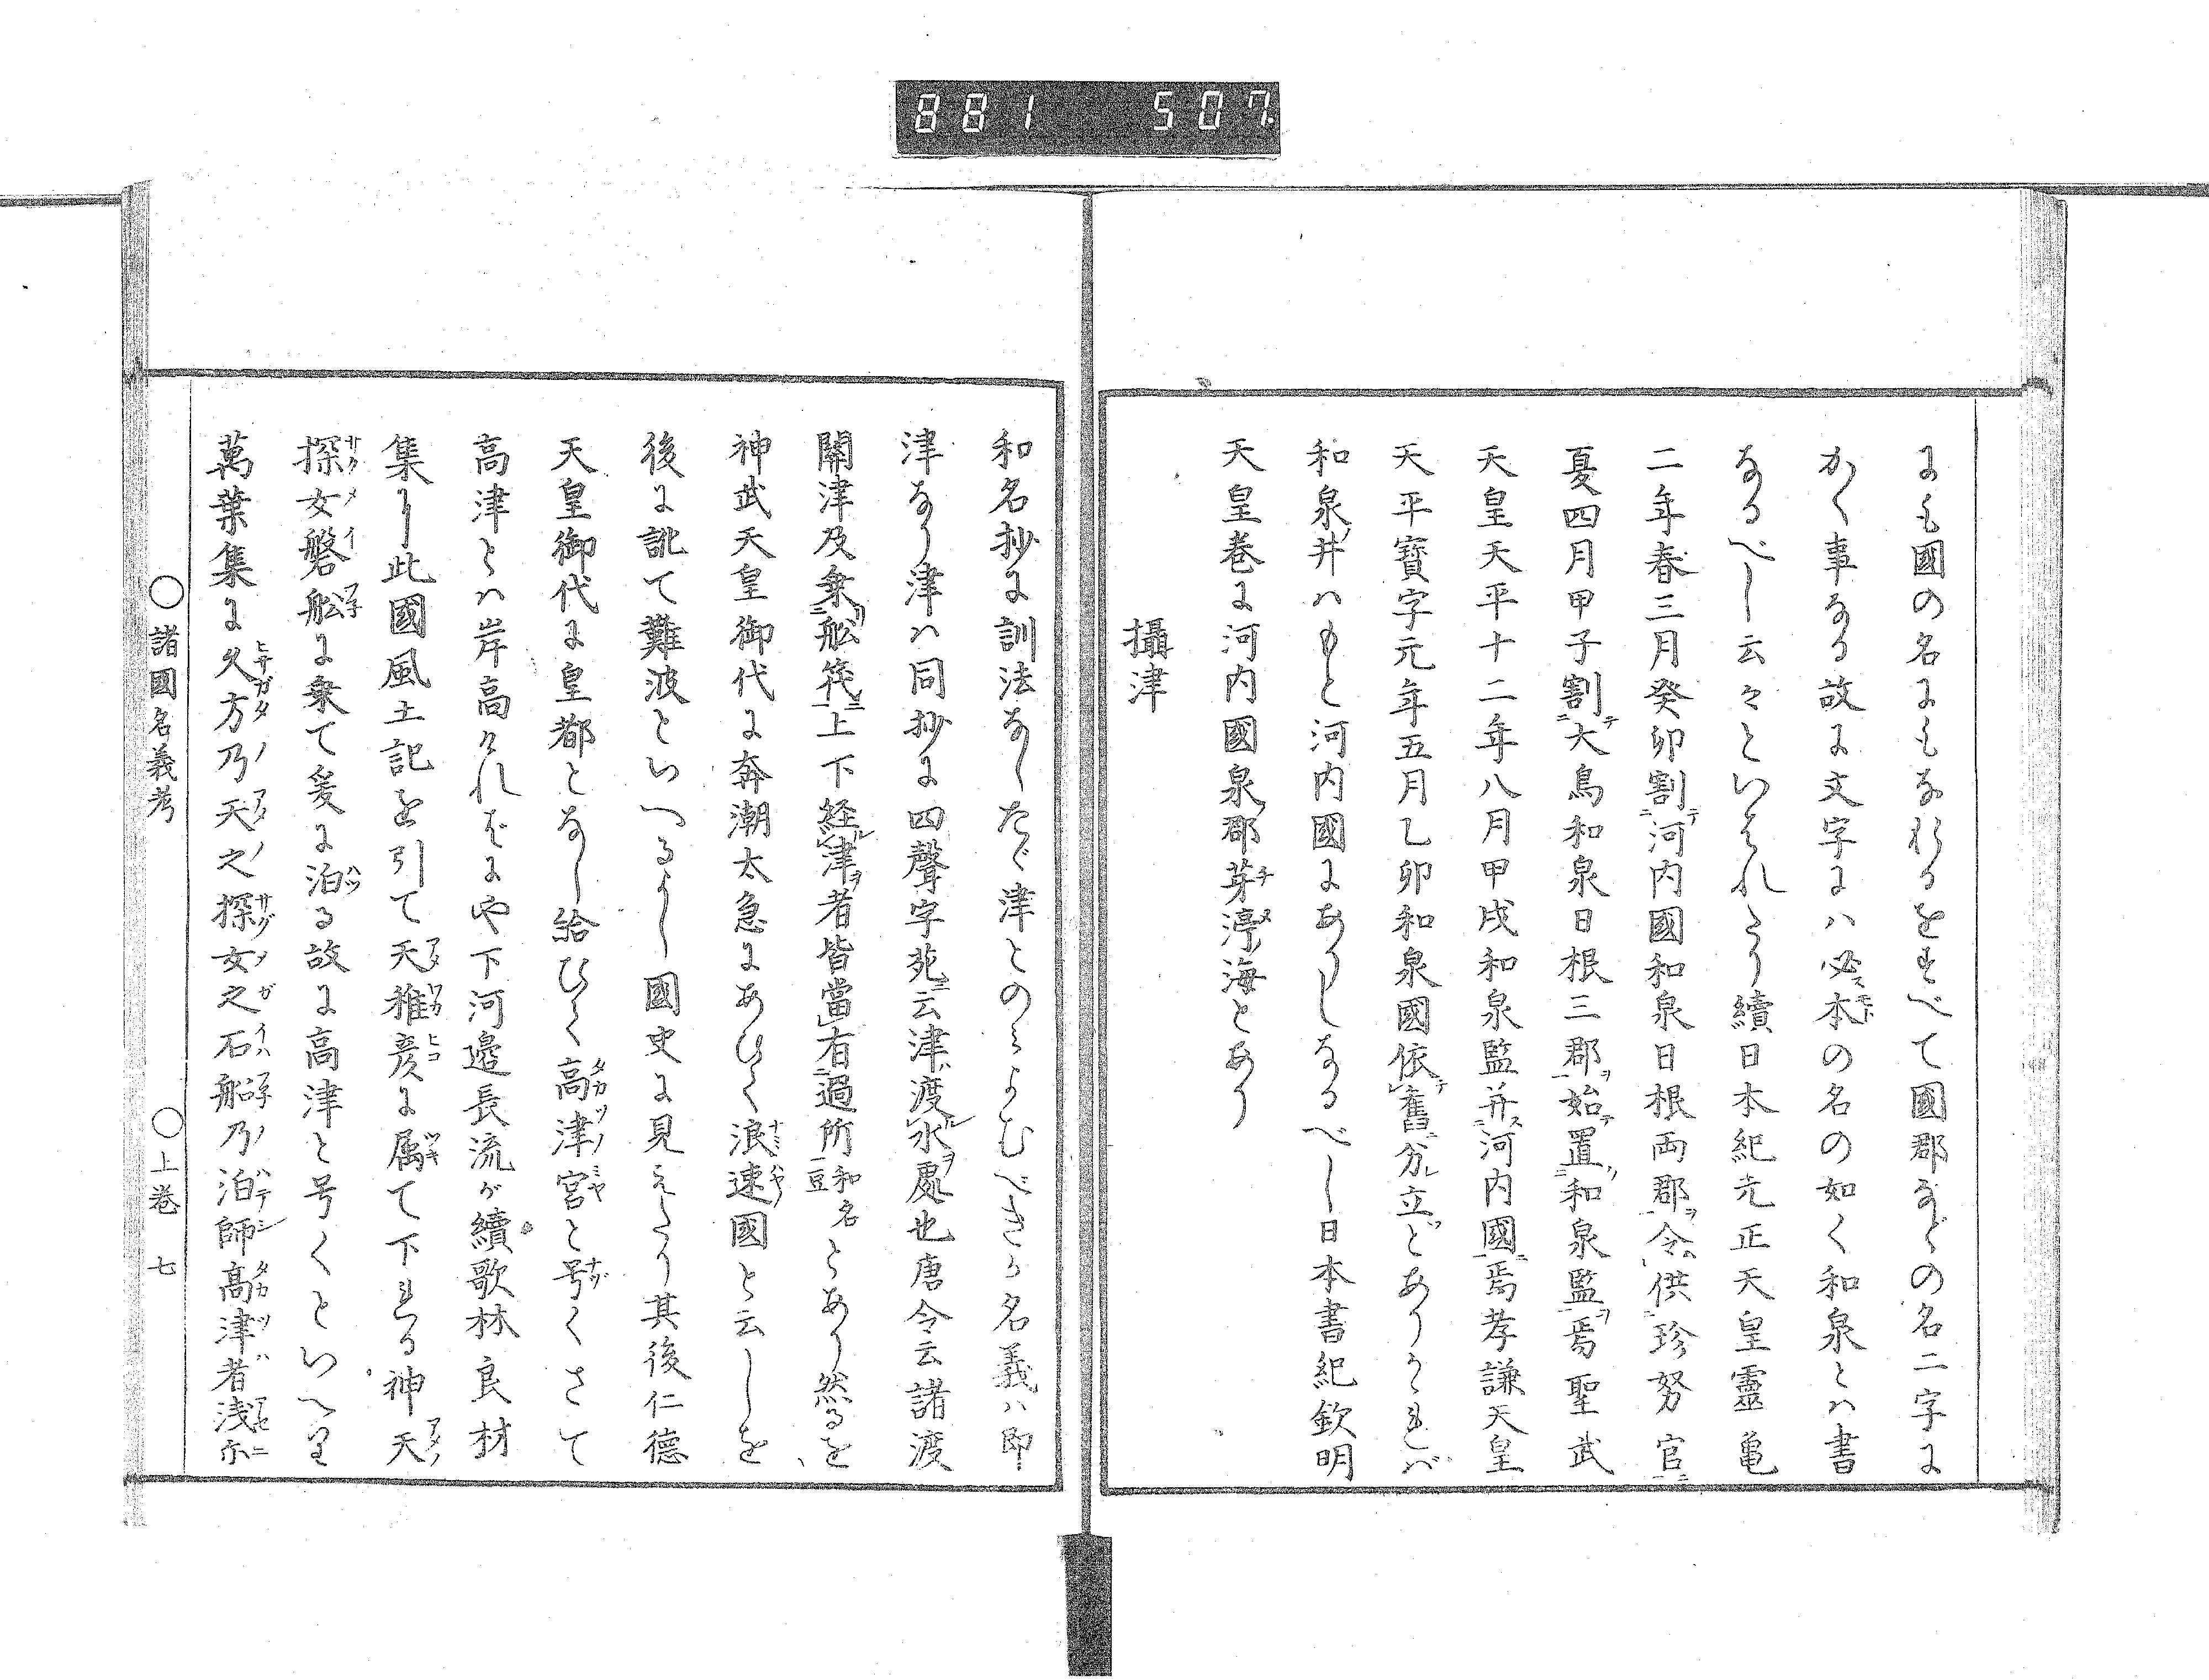 881 507.
にも國の名にもなれるをすべて國郡などの名二字に
かく事なる故に文字にハ必ス本の名の如く和泉とハ書
なるべし云々といはれたり續日本紀元正天皇靈亀
二年春三月癸卯割河内國和泉日根両郡令供珍努官
夏四月甲子割大鳥和泉日根三郡始置和泉監焉聖武
天皇天平十二年八月甲戌和泉監并河内國焉孝謙天皇
天平寶字元年五月乙卯和泉國依舊分立どありかれバ
和泉井ハもと河内國にありしなるべし日本書紀欽明
天皇巻に河内國泉郡茅渟海とあり
攝津
和名抄に訓法なしたゞ津とのミよむべきか名義ハ即
津なり津ハ同抄に四聲字苑云津渡水處也唐令云諸渡
關津及乗舩筏上下経津者皆當有過所和名豆とあり然るを
神武天皇御代に奔潮太急にあひて浪速國と云しを
後に訛て難波といへるよし國史に見えたり其後仁徳
天皇御代に皇都となし給ひて高津宮と号くさて
高津とハ岸高けれバにや下河邉長流が續歌林良材
集に此國風土記を引て天稚彦に属て下れる神天
探女磐舩に乗て爰に泊る故に高津と号くといへり
萬葉集に久方乃天之探女之石船乃泊師高津者浅尓
○諸國名義考 ○上巻 七